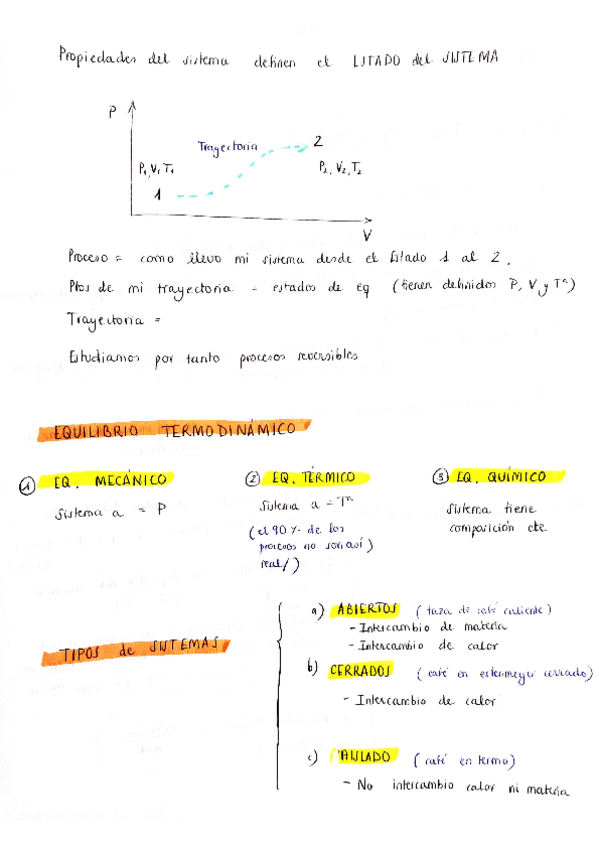 Propiedades del sistema definen el ESTADO del SISTEMA
P
Trayectoria
2
P₁, V₁ T₁
P₂, V₂, T₂
1
V
Proceso = como llevo mi sistema desde el Estado 1 al 2.
Ptos de mi trayectoria = estados de eq (tienen definidos P, V y Tª)
Trayectoria =
Estudiamos por tanto procesos reversibles
EQUILIBRIO TERMODINÁMICO
① EQ. MECÁNICO
② EQ. TÉRMICO
③ EQ. QUÍMICO
Sistema a = P
Sistema a = Tª
Sistema tiene
composición cte
(el 90% de los
procesos no son así)
real/)
TIPOS de SISTEMAS
a) ABIERTOS (taza de café caliente)
- Intercambio de materia
- Intercambio de calor
b) CERRADOS (café en erlenmeyer cerrado)
- Intercambio de calor
c) AISLADO (café en termo)
- No intercambio calor ni materia